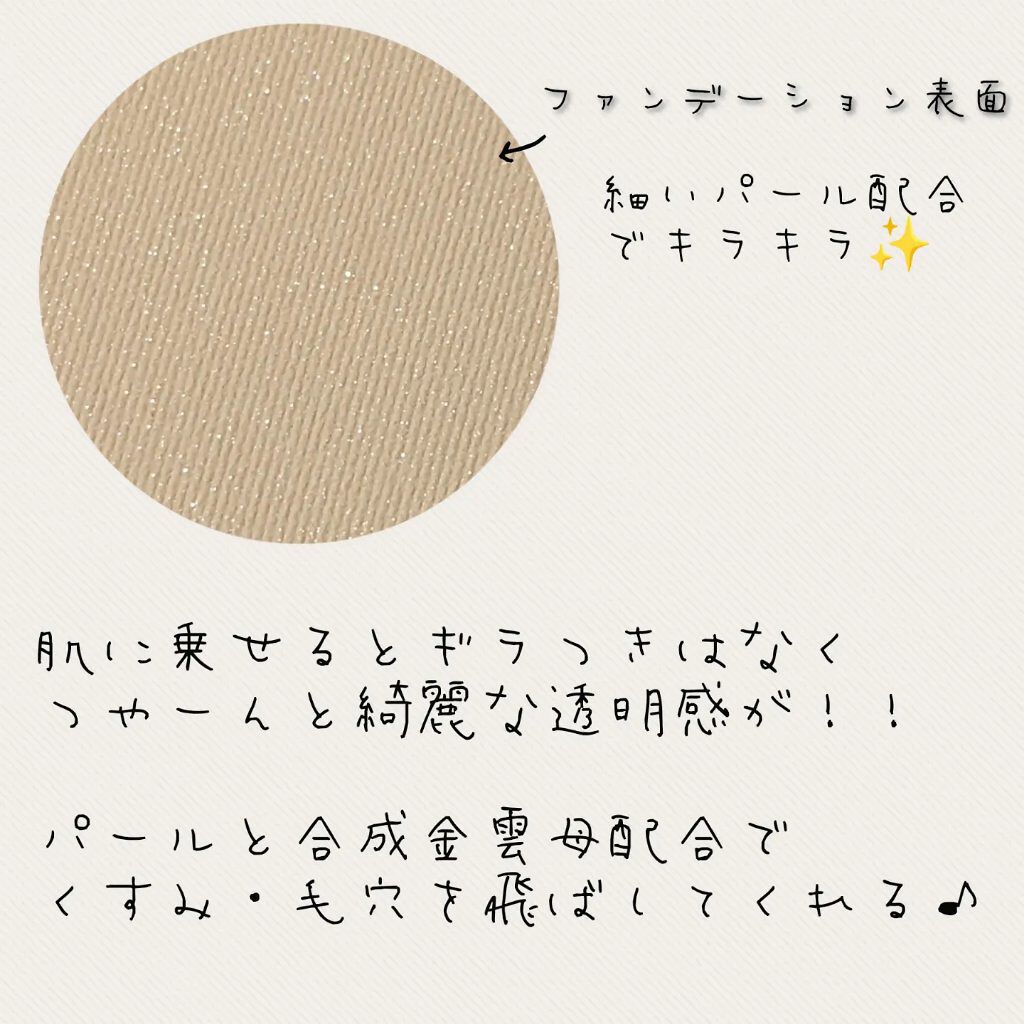 ファンデーション表面
細いパール配合
でキラキラ✨
肌に乗せるとギラつきはなく
つやーんと綺麗な透明感が！！
パールと合成金雲母配合で
くすみ・毛穴を飛ばしてくれる♪